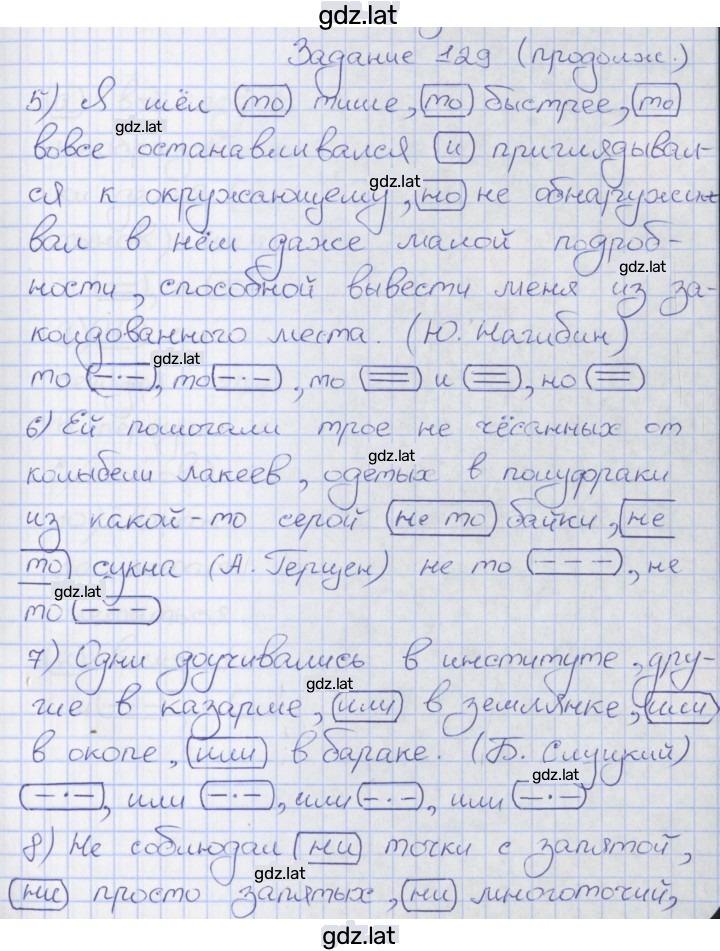 gdz.lat
Задание 129 (продолж.)
5) Я шёл то тише, то быстрее, то
gdz.lat
вовсе останавливался и приглядывал-
gdz.lat
ся к окружающему, но не обнаружи-
вал в нём даже малой подроб-
gdz.lat
ности, способной вывести меня из за-
колдованного места. (Ю. Нагибин)
gdz.lat
то (–·–), то (–·–), то (=) и (=), но (=)
6) Ей помогали трое не чёсанных от
gdz.lat
колыбели лакеев, одетых в полуфраки
из какой-то серой не то байки, не
то сукна (А. Герцен) не то (– – –), не
gdz.lat
то (– – –)
7) Одни доучивались в институте, дру-
gdz.lat
гие в казарме, или в землянке, или
в окопе, или в бараке. (Б. Слуцкий)
gdz.lat
(–·–), или (–·–), или (–·–), или (–·–)
8) Не соблюдал ни точки с запятой,
gdz.lat
ни просто запятых, ни многоточий,
gdz.lat